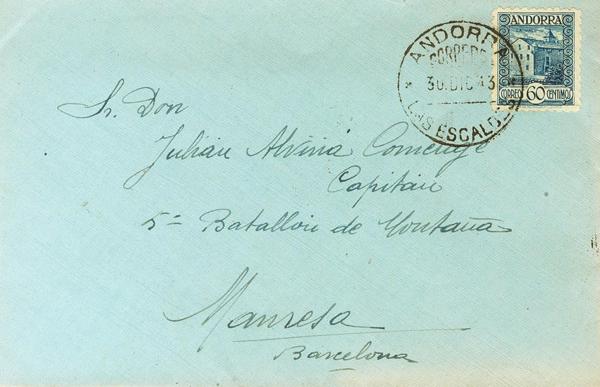 ANDORRA
CORREOS
30.DIC.43
LAS ESCALDAS
ANDORRA
CORREO 60 CENTIMOS
Sr. Don
Julian Alviná Comenge
Capitán
5º Batallón de Montaña
Manresa
Barcelona